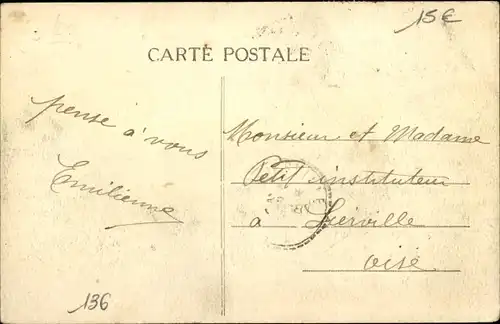 15€
CARTE POSTALE
pense à vous
Emilienne
Monsieur et Madame
Petit instituteur
à Lierville
Oise
136